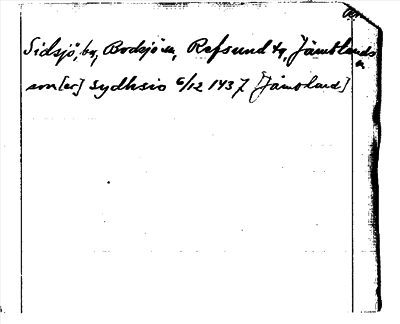 Sidsjö, by, Bodsjö sn, Refsund tg, Jämtlands
son[er] sydhsio 6/12 1437 [Jämtland]